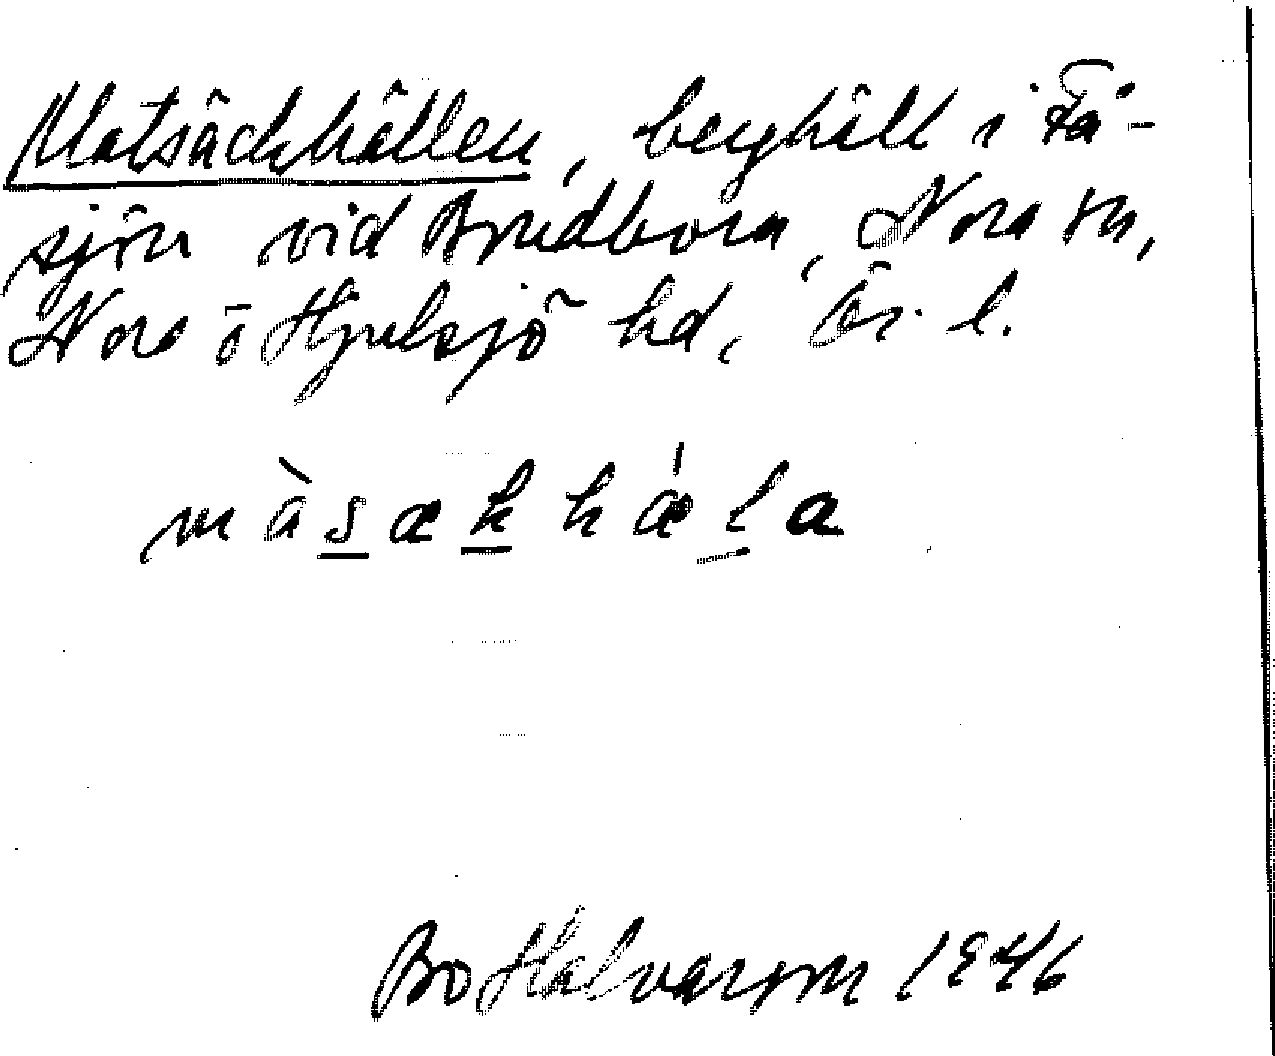 Matsäckhällen, berghäll i Få-
sjön vid Bredbora, Nora sn,
Nora o Hjulsjö hd, Ör. l.
màsækhǽla
Bo Halvarson 1946